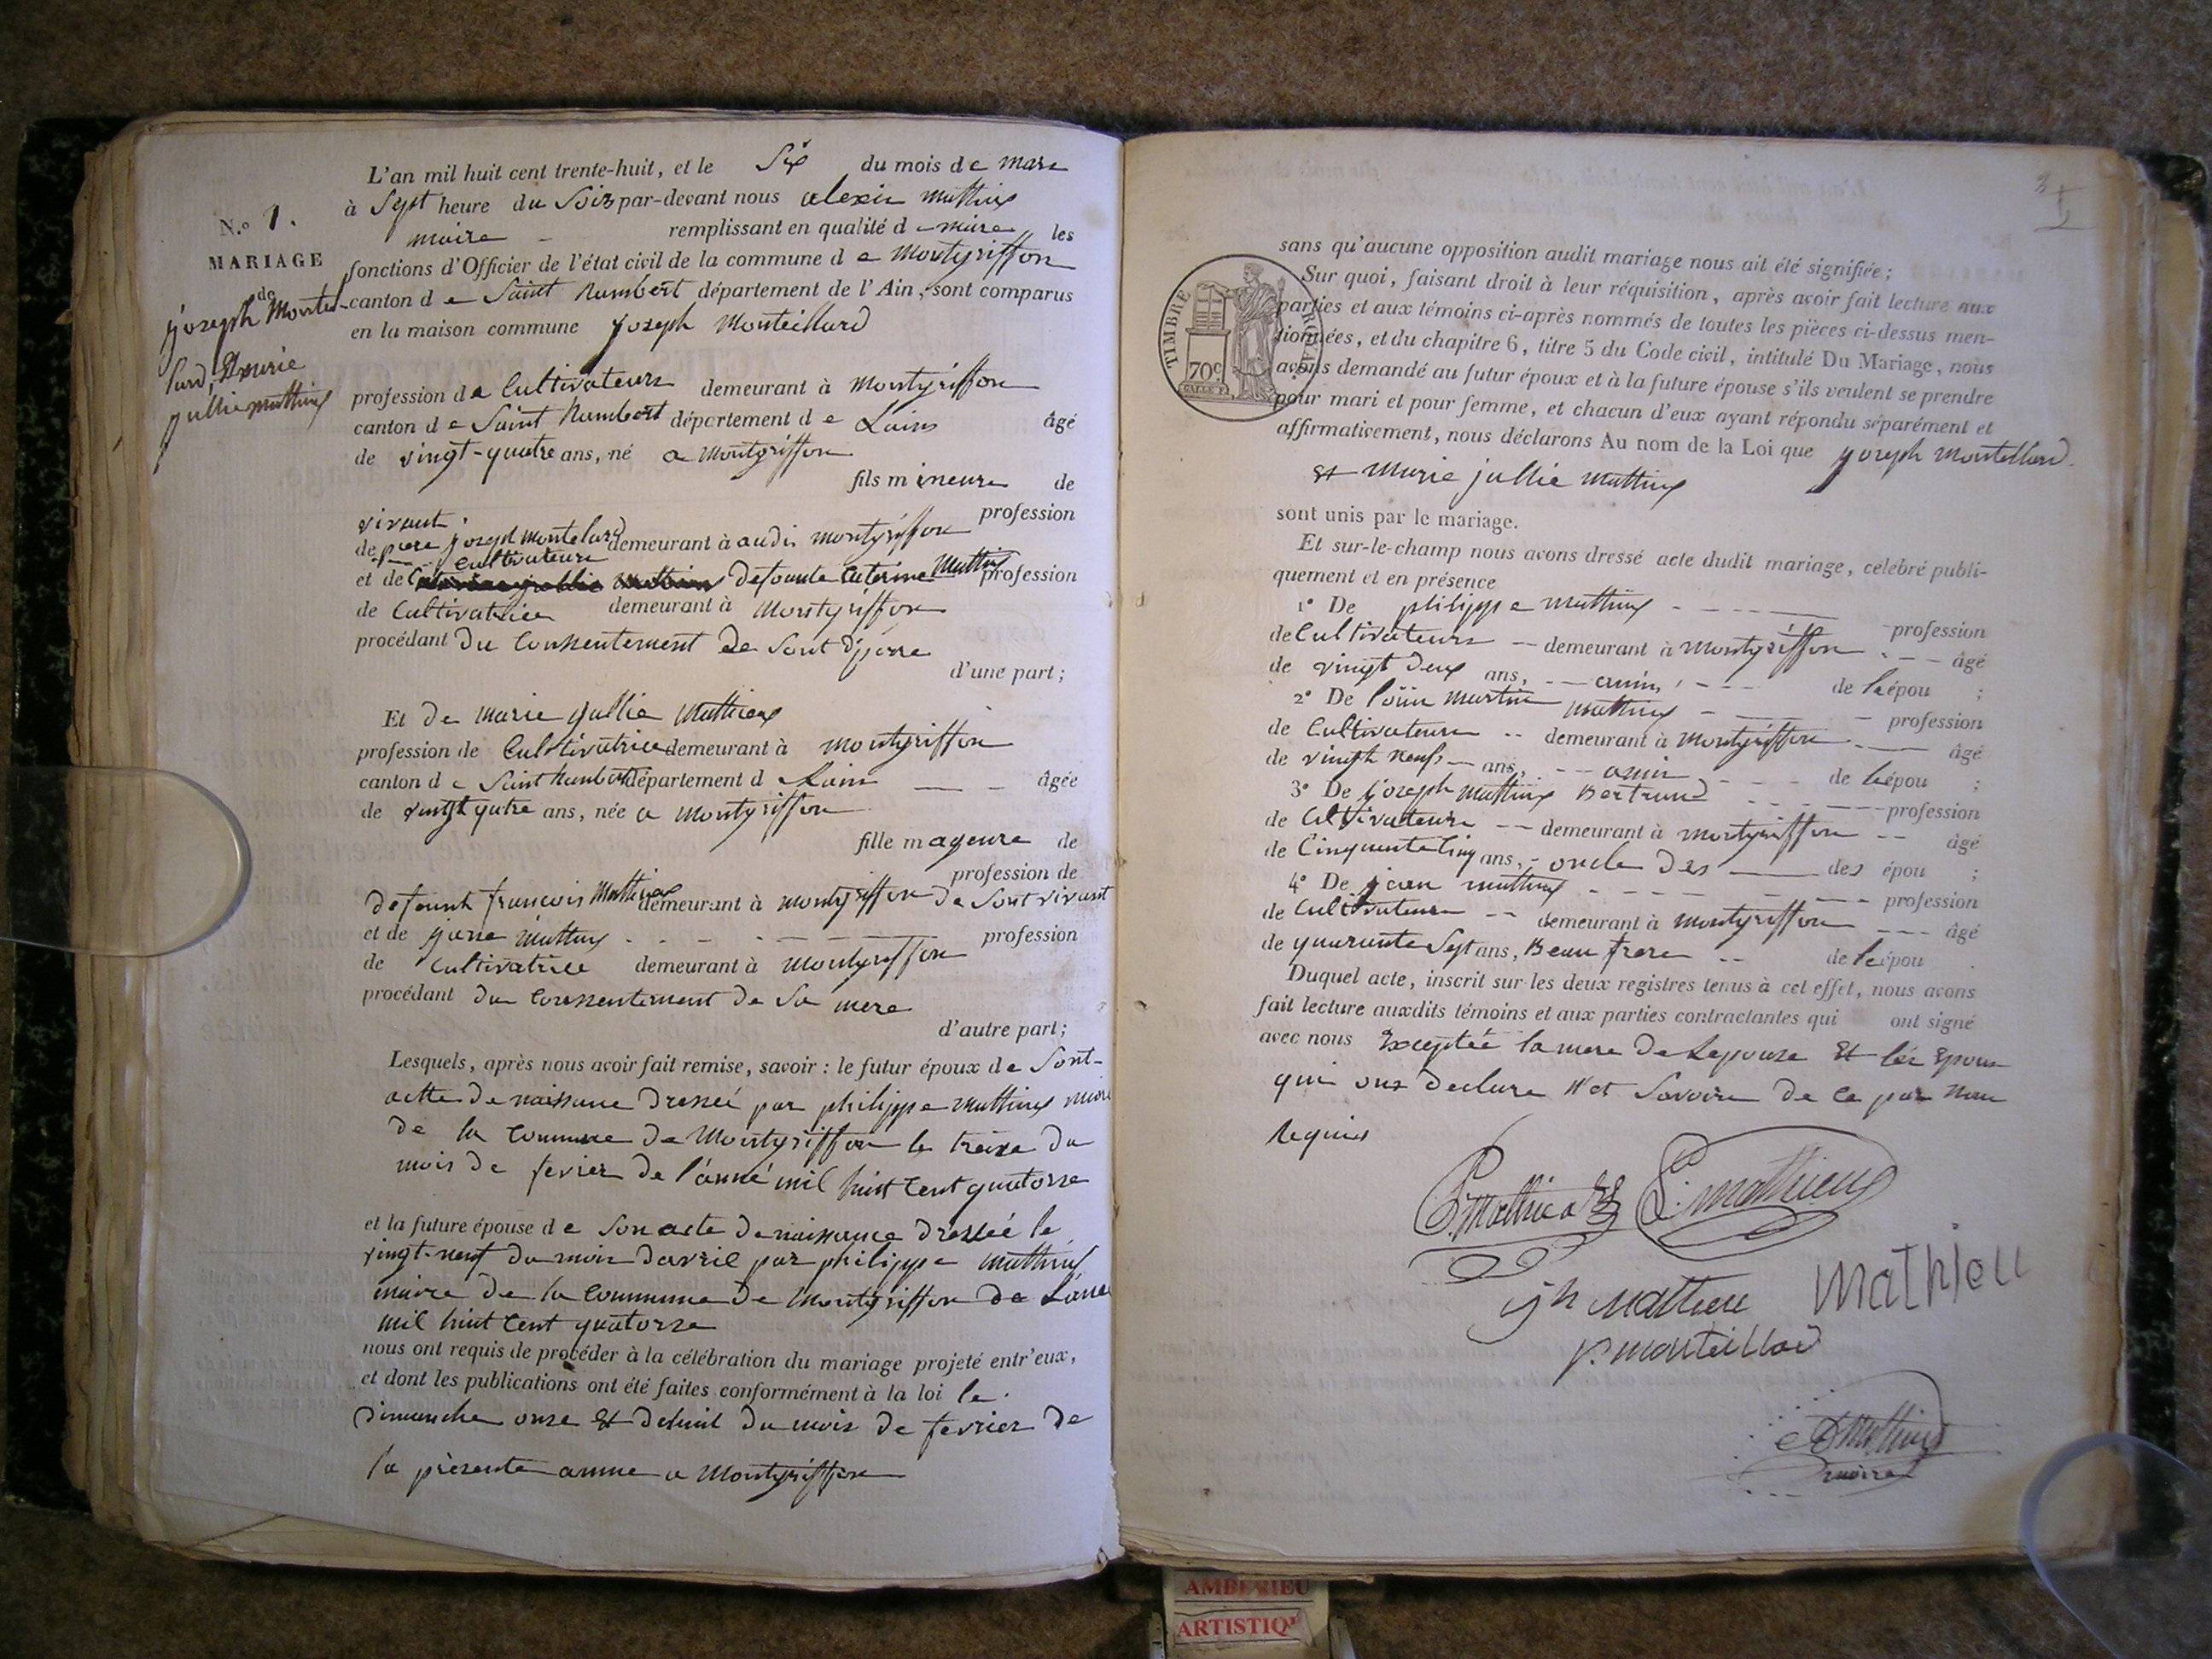 L'an mil huit cent trente-huit, et le Six du mois de mars
à Sept heure du Soir par-devant nous alexis mathieux
maire remplissant en qualité de maire les
fonctions d'Officier de l'état civil de la commune de Montgriffon
canton de Saint Rambert département de l'Ain, sont comparus
en la maison commune joseph Monteillard
N.º 1.
MARIAGE
de
joseph Monteil-
lard, & marie
jullie mathieux
profession de Cultivateurs demeurant à montgriffon
canton de Saint Rambert département de Lains âgé
de vingt-quatre ans, né a montgriffon
fils mineure de
vivant profession
de piere joseph montelard demeurant à audis montgriffon
cultivateure
et de defounte Caterine Mathieux profession
de Cultivatrice demeurant à Montgriffon
procédant Du Consentement De Sont dipere
d'une part;
Et De marie jullie Mathieux
profession de Cultivatrice demeurant à montgriffon
canton de Saint Rambert département de Lain âgée
de vingt qutre ans, née a montgriffon
fille mageure de
profession de
Defount francois Mathieux demeurant à montgriffon De Sont vivant
et de mathieux profession
de Cultivatrice demeurant à Montgriffon
procédant du Consentement De Sa mere
d'autre part;
Lesquels, après nous avoir fait remise, savoir: le futur époux de Sont-
actte De naissance Dressée par philippe mathieux maire
De la Commune De Montgriffon le treize Du
mois De fevrier De l'anné mil huit Cent quatorze
et la future épouse de Son acte De naissance Dressée le
vingt-neuf Du mois Davril par philippe mathieux
maire De la Commune De Montgriffon De Lanné
mil huit Cent quatorze
nous ont requis de procéder à la célébration du mariage projeté entr'eux,
et dont les publications ont été faites conformément à la loi le
Dimanche onze & Dehuit Du mois De fevrier De
la présente anne a Montgriffon
3
sans qu'aucune opposition audit mariage nous ait été signifiée;
Sur quoi, faisant droit à leur réquisition, après avoir fait lecture aux
parties et aux témoins ci-après nommés de toutes les pièces ci-dessus men-
tionnées, et du chapitre 6, titre 5 du Code civil, intitulé Du Mariage, nous
avons demandé au futur époux et à la future épouse s'ils veulent se prendre
pour mari et pour femme, et chacun d'eux ayant répondu séparément et
affirmativement, nous déclarons Au nom de la Loi que joseph Montellard
& Marie jullie Mathieux
TIMBRE ROYAL
70c
sont unis par le mariage.
Et sur-le-champ nous avons dressé acte dudit mariage, celebré publi-
quement et en présence
1º De philippe mathieux profession
de Cultivateurs demeurant à montgriffon âgé
de vingt Deux ans, amin, de lépou ;
2º De loüin martin mathieux profession
de Cultivateure demeurant à montgriffon âgé
de vingt neuf ans, amin de lépou ;
3º De joseph mathieux Bertrand profession
de Cultivateure demeurant à montgriffon âgé
de Cinquente Cinq ans, oncle Des des épou ;
4º De jean mathieux profession
de Cultivateure demeurant à montgriffon âgé
de quarante Sept ans, Beau frere de lépou
Duquel acte, inscrit sur les deux registres tenus à cet effet, nous avons
fait lecture auxdits témoins et aux parties contractantes qui ont signé
avec nous Exceptée la mere De Lepouse & les Epoux
qui ons Declare Savoire De ce par nou
Requis
P. Mathieu L. mathieux
jh mathieu mathieu
p. monteillard
A Mathieux
maire
AMBERIEU
ARTISTIQU